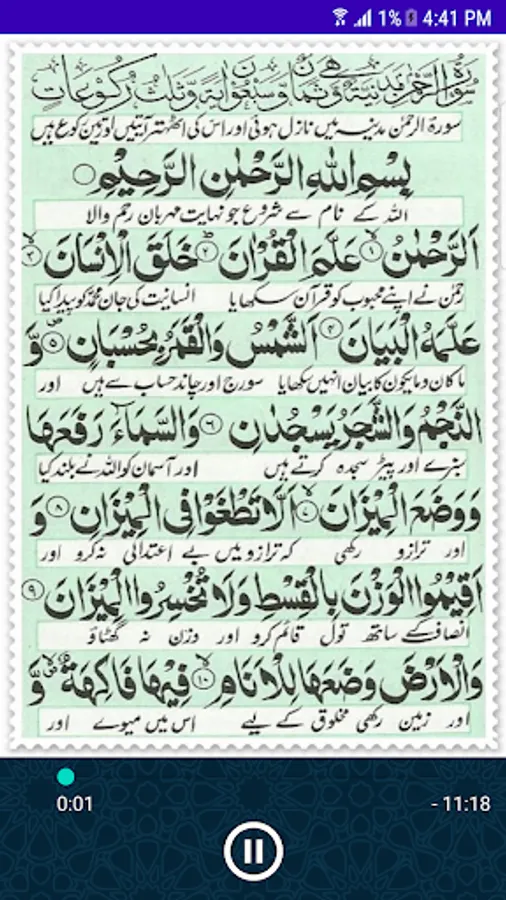 1% 4:41 PM
سُوْرَةُ الرَّحْمٰنِ مَدَنِيَّةٌ وَّهِيَ ثَمَانٍ وَّسَبْعُوْنَ اٰيَةً وَّثَلٰثُ رُكُوْعَاتٍ
سورۃ الرحمٰن مدینہ میں نازل ہوئی اور اس کی اٹھہتر آیتیں اور تین رکوع ہیں
بِسْمِ اللّٰهِ الرَّحْمٰنِ الرَّحِيْمِ
اللہ کے نام سے شروع جو نہایت مہربان رحم والا
اَلرَّحْمٰنُ ۙ﴿۱﴾ عَلَّمَ الْقُرْاٰنَ ؕ﴿۲﴾ خَلَقَ الْاِنْسَانَ ۙ﴿۳﴾
رحمٰن نے اپنے محبوب کو قرآن سکھایا انسانیت کی جان محمد کو پیدا کیا
عَلَّمَهُ الْبَيَانَ ﴿۴﴾ اَلشَّمْسُ وَالْقَمَرُ بِحُسْبَانٍ ﴿۵﴾ وَّ
ما کان وما یکون کا بیان انہیں سکھایا سورج اور چاند حساب سے ہیں اور
النَّجْمُ وَالشَّجَرُ يَسْجُدٰنِ ﴿۶﴾ وَالسَّمَآءَ رَفَعَهَا
سبزے اور پیڑ سجدہ کرتے ہیں اور آسمان کو اللہ نے بلند کیا
وَوَضَعَ الْمِيْزَانَ ۙ﴿۷﴾ اَلَّا تَطْغَوْا فِى الْمِيْزَانِ ﴿۸﴾ وَ
اور ترازو رکھی کہ ترازو میں بے اعتدالی نہ کرو اور
اَقِيْمُوا الْوَزْنَ بِالْقِسْطِ وَلَا تُخْسِرُوا الْمِيْزَانَ ﴿۹﴾
انصاف کے ساتھ تول قائم کرو اور وزن نہ گھٹاؤ
وَالْاَرْضَ وَضَعَهَا لِلْاَنَامِ ﴿۱۰﴾ فِيْهَا فَاكِهَةٌ وَّ
اور زمین رکھی مخلوق کے لیے اس میں میوے اور
0:01 - 11:18